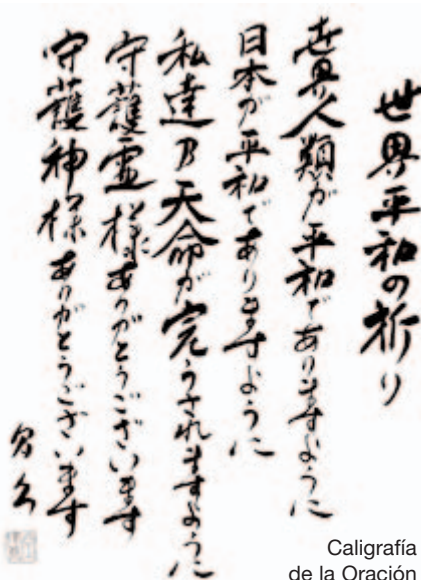 世界平和の祈り
世界人類が平和でありますように
日本が平和でありますように
私達乃天命が完うされますように
守護霊様ありがとうございます
守護神様ありがとうございます
昌久
Caligrafía
de la Oración